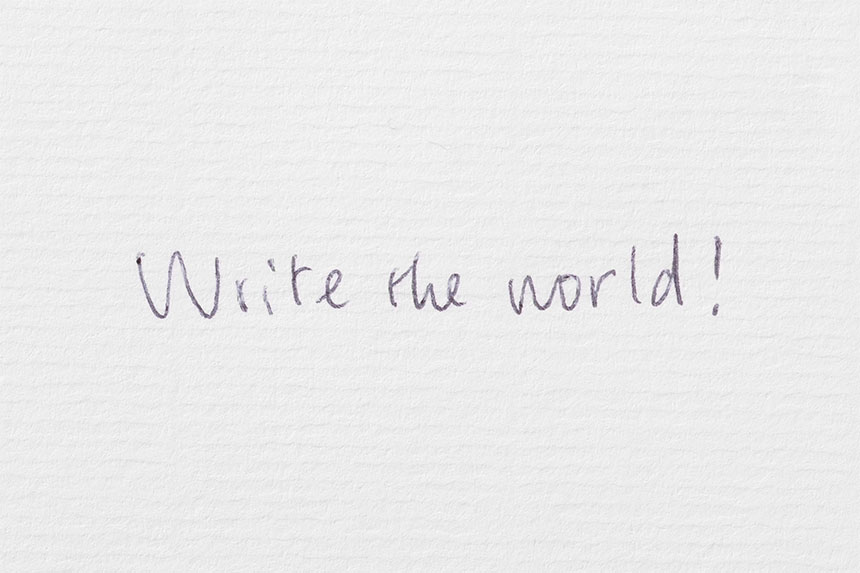 Write the world!